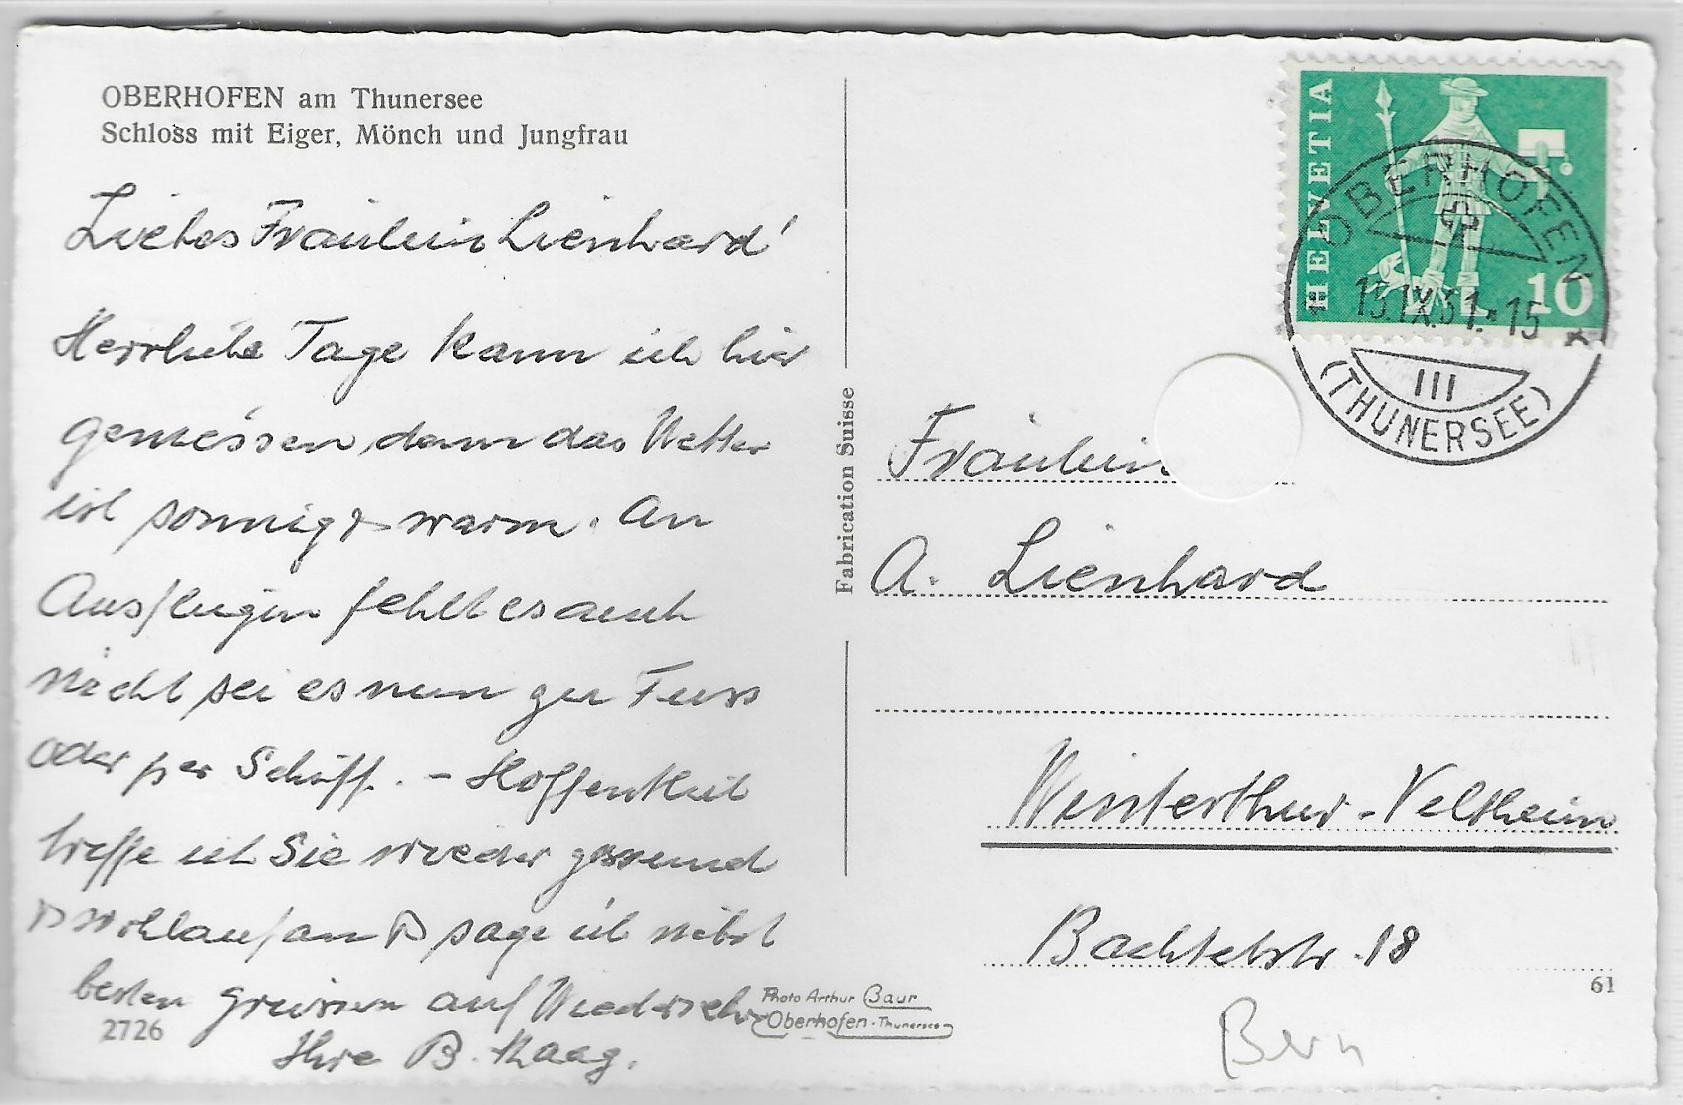 OBERHOFEN am Thunersee
Schloss mit Eiger, Mönch und Jungfrau
Liebes Fräulein Lienhard!
Herrliche Tage kann ich hier
geniessen, denn das Wetter
ist sonnig & warm. An
Ausflügen fehlt es auch
nicht sei es nun zu Fuss
oder per Schiff. – Hoffentlich
treffe ich Sie wieder gesund
& wohlauf an & sage ich nebst
besten Grüssen auf Wiedersehn
Ihre B. Kaag.
2726
Fabrication Suisse
Photo Arthur Baur
Oberhofen-Thunersee
HELVETIA
10
OBERHOFEN
15
III
(THUNERSEE)
Fräulein
A. Lienhard
Winterthur-Veltheim
Bachtelstr. 18
61
Bern